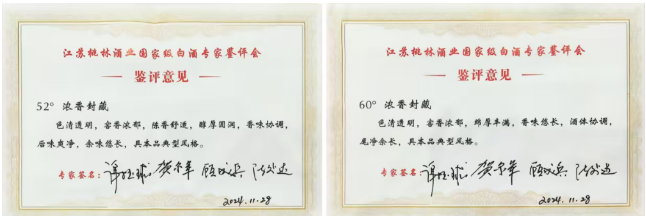 江苏桃林酒业国家级白酒专家鉴评会
鉴评意见
52° 浓香封藏
色清透明，窖香浓郁，陈香舒适，醇厚圆润，香味协调，
后味爽净，余味悠长，具本品典型风格。
专家签名：
2024.11.28
江苏桃林酒业国家级白酒专家鉴评会
鉴评意见
60° 浓香封藏
色清透明，窖香浓郁，绵厚丰满，香味悠长，酒体协调，
尾净余长，具本品典型风格。
专家签名：
2024.11.28